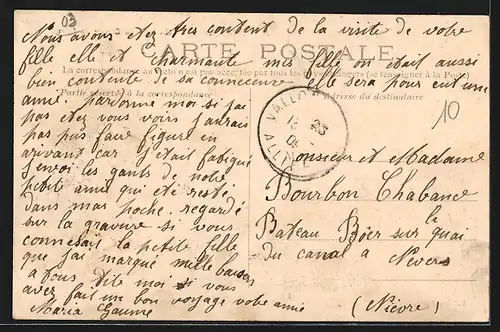 03
Nous avons etez tres content de la visite de votre
fille elle et charmante mes fille on etait aussi
CARTE POSTALE
bien contente de sa conneceure elle sera pour eut une
La correspondance au recto n'est pas acceptée par tous les pays étrangers (se renseigner à la Poste)
Partie réservée à la correspondance
adresse du destinataire
amie. pardonne moi si jai
pas etez vous voirs jaurais
pas pus faire figure en
arivant car j'etait fatigué
J'envoi les gants de notre
petite ami qui eté resté
dans mas poche. regardé
sur la gravure si vous
connessait la petite fille
que j'ai marqué mille baisers
a tous dite moi si vous
avez fait un bon voyage votre amie
Maria Gaume
VALLON
ALLIER
10
Monsieur et Madame
Bourbon Chabance
Bateau Böer sur le quai
du canal a Nevers
(Nièvre)